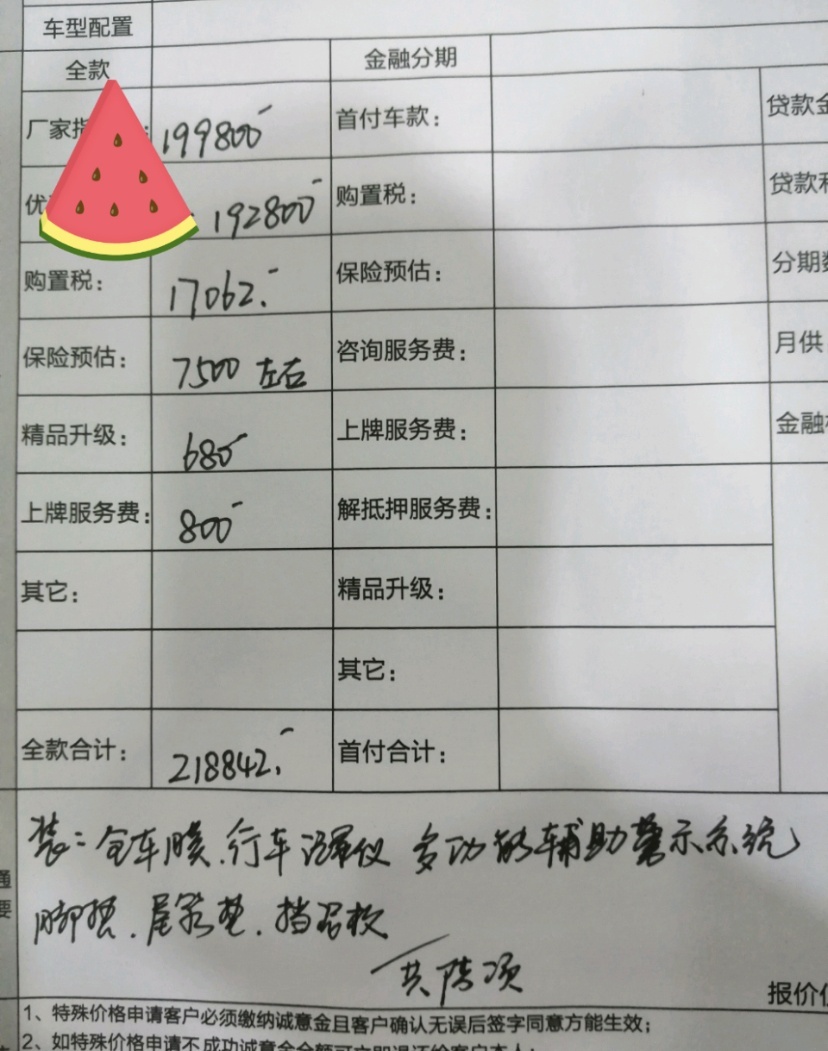 车型配置
全款 金融分期
厂家指 199800 首付车款： 贷款金
优 192800 购置税： 贷款利
购置税： 17062. 保险预估： 分期数
保险预估： 7500 左右 咨询服务费： 月供
精品升级： 680 上牌服务费： 金融
上牌服务费： 800 解抵押服务费：
其它： 精品升级：
其它：
全款合计： 218842. 首付合计：
装：全车膜.行车记录仪 多功能辅助警示系统
脚垫.尾箱垫.挡泥板
共 项
通
要
报价仅
1、特殊价格申请客户必须缴纳诚意金且客户确认无误后签字同意方能生效；
2、如特殊价格申请不成功诚意金全额可立即退还给客户本人；